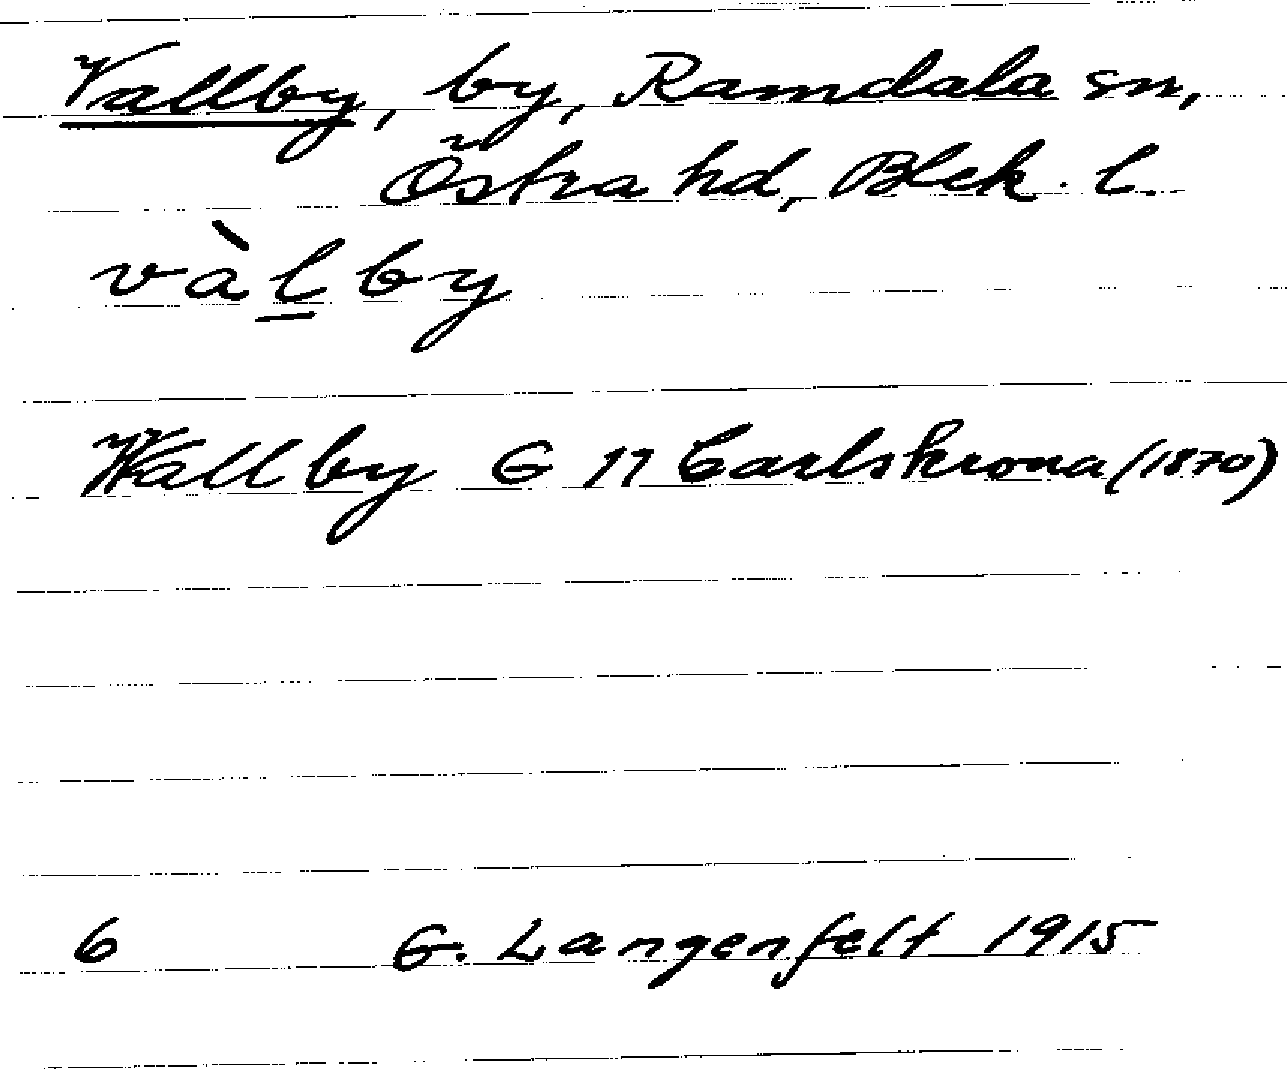 Vallby, by, Ramdala sn,
Östra hd, Blek. l.
vàlby
Wallby G 17 Carlskrona (1870)
6 G. Langenfelt 1915